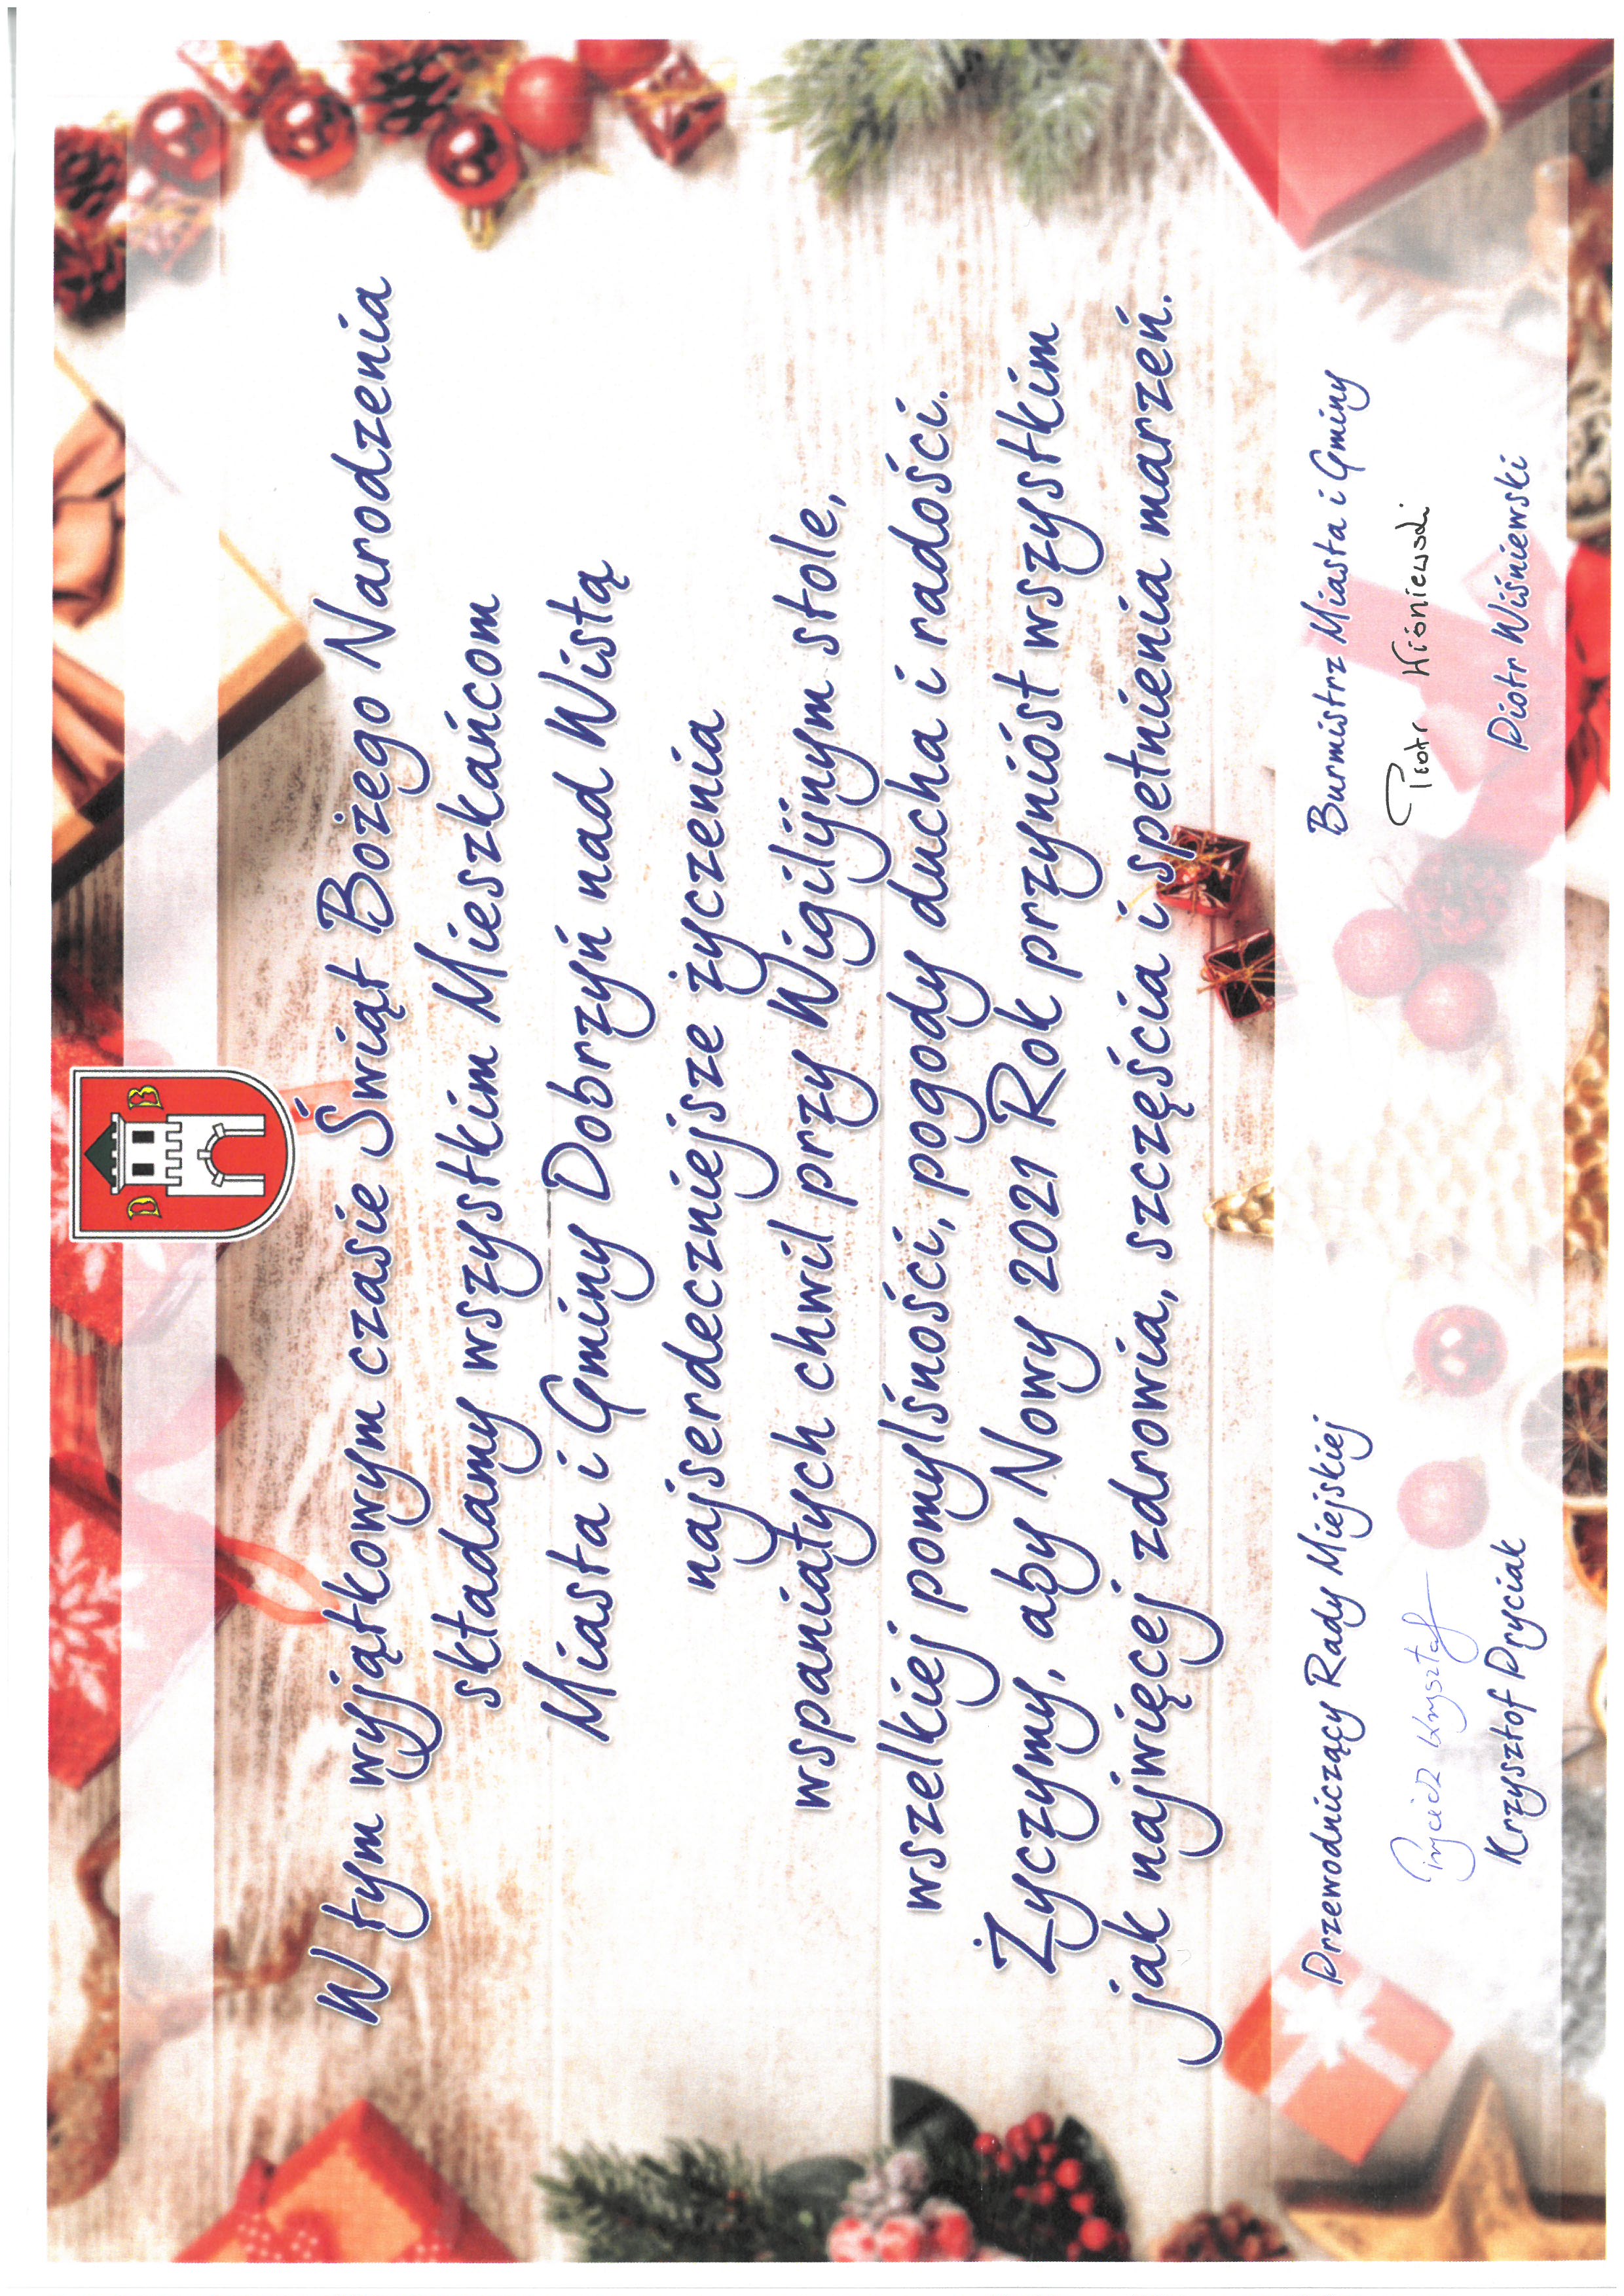 D B
W tym wyjątkowym czasie Świąt Bożego Narodzenia
składamy wszystkim Mieszkańcom
Miasta i Gminy Dobrzyń nad Wisłą
najserdeczniejsze życzenia
wspaniałych chwil przy Wigilijnym stole,
wszelkiej pomyślności, pogody ducha i radości.
Życzymy, aby Nowy 2021 Rok przyniósł wszystkim
jak najwięcej zdrowia, szczęścia i spełnienia marzeń.
Przewodniczący Rady Miejskiej
Pryciak Krzysztof
Krzysztof Pryciak
Burmistrz Miasta i Gminy
Piotr Wiśniewski
Piotr Wiśniewski